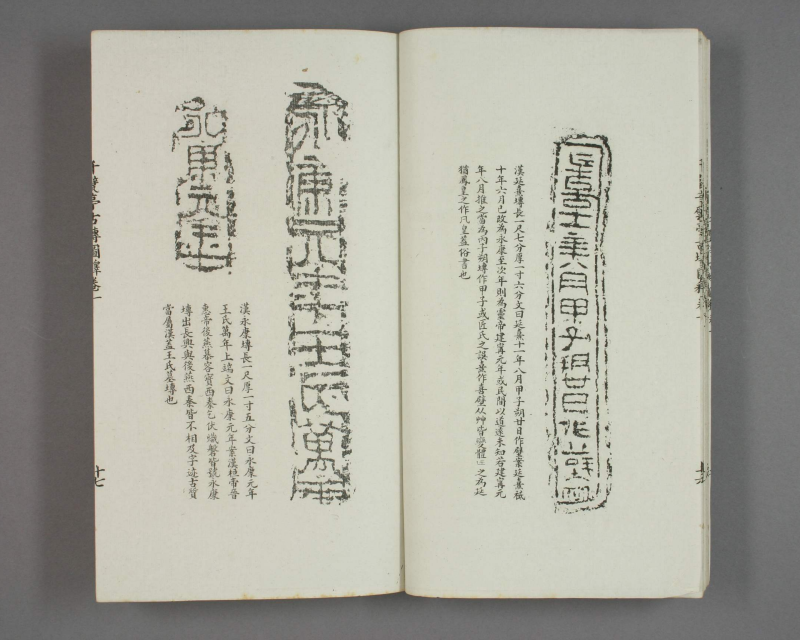 漢延熹塼長一尺七分厚一寸六分文曰延熹十一年八月甲子朔廿日作壁案延熹祗
十年六月已改為永康至次年則為靈帝建寧元年或民間以道遠未知若建寧元
年八月推之當為丙子朔塼作甲子或匠氏之誤熹作喜壁从艸皆變體之為延
猶鳳皇之作凡皇蓋俗書也
永康元年王氏萬年
永康元年
漢永康塼長一尺厚一寸五分文曰永康元年
王氏萬年上端文曰永康元年案漢桓帝晉
惠帝後燕慕容寶西秦乞伏熾磐皆號永康
塼出長興與後燕西秦皆不相及字迹古質
當屬漢蓋王氏墓塼也
千甓亭古塼圖釋卷一
十七